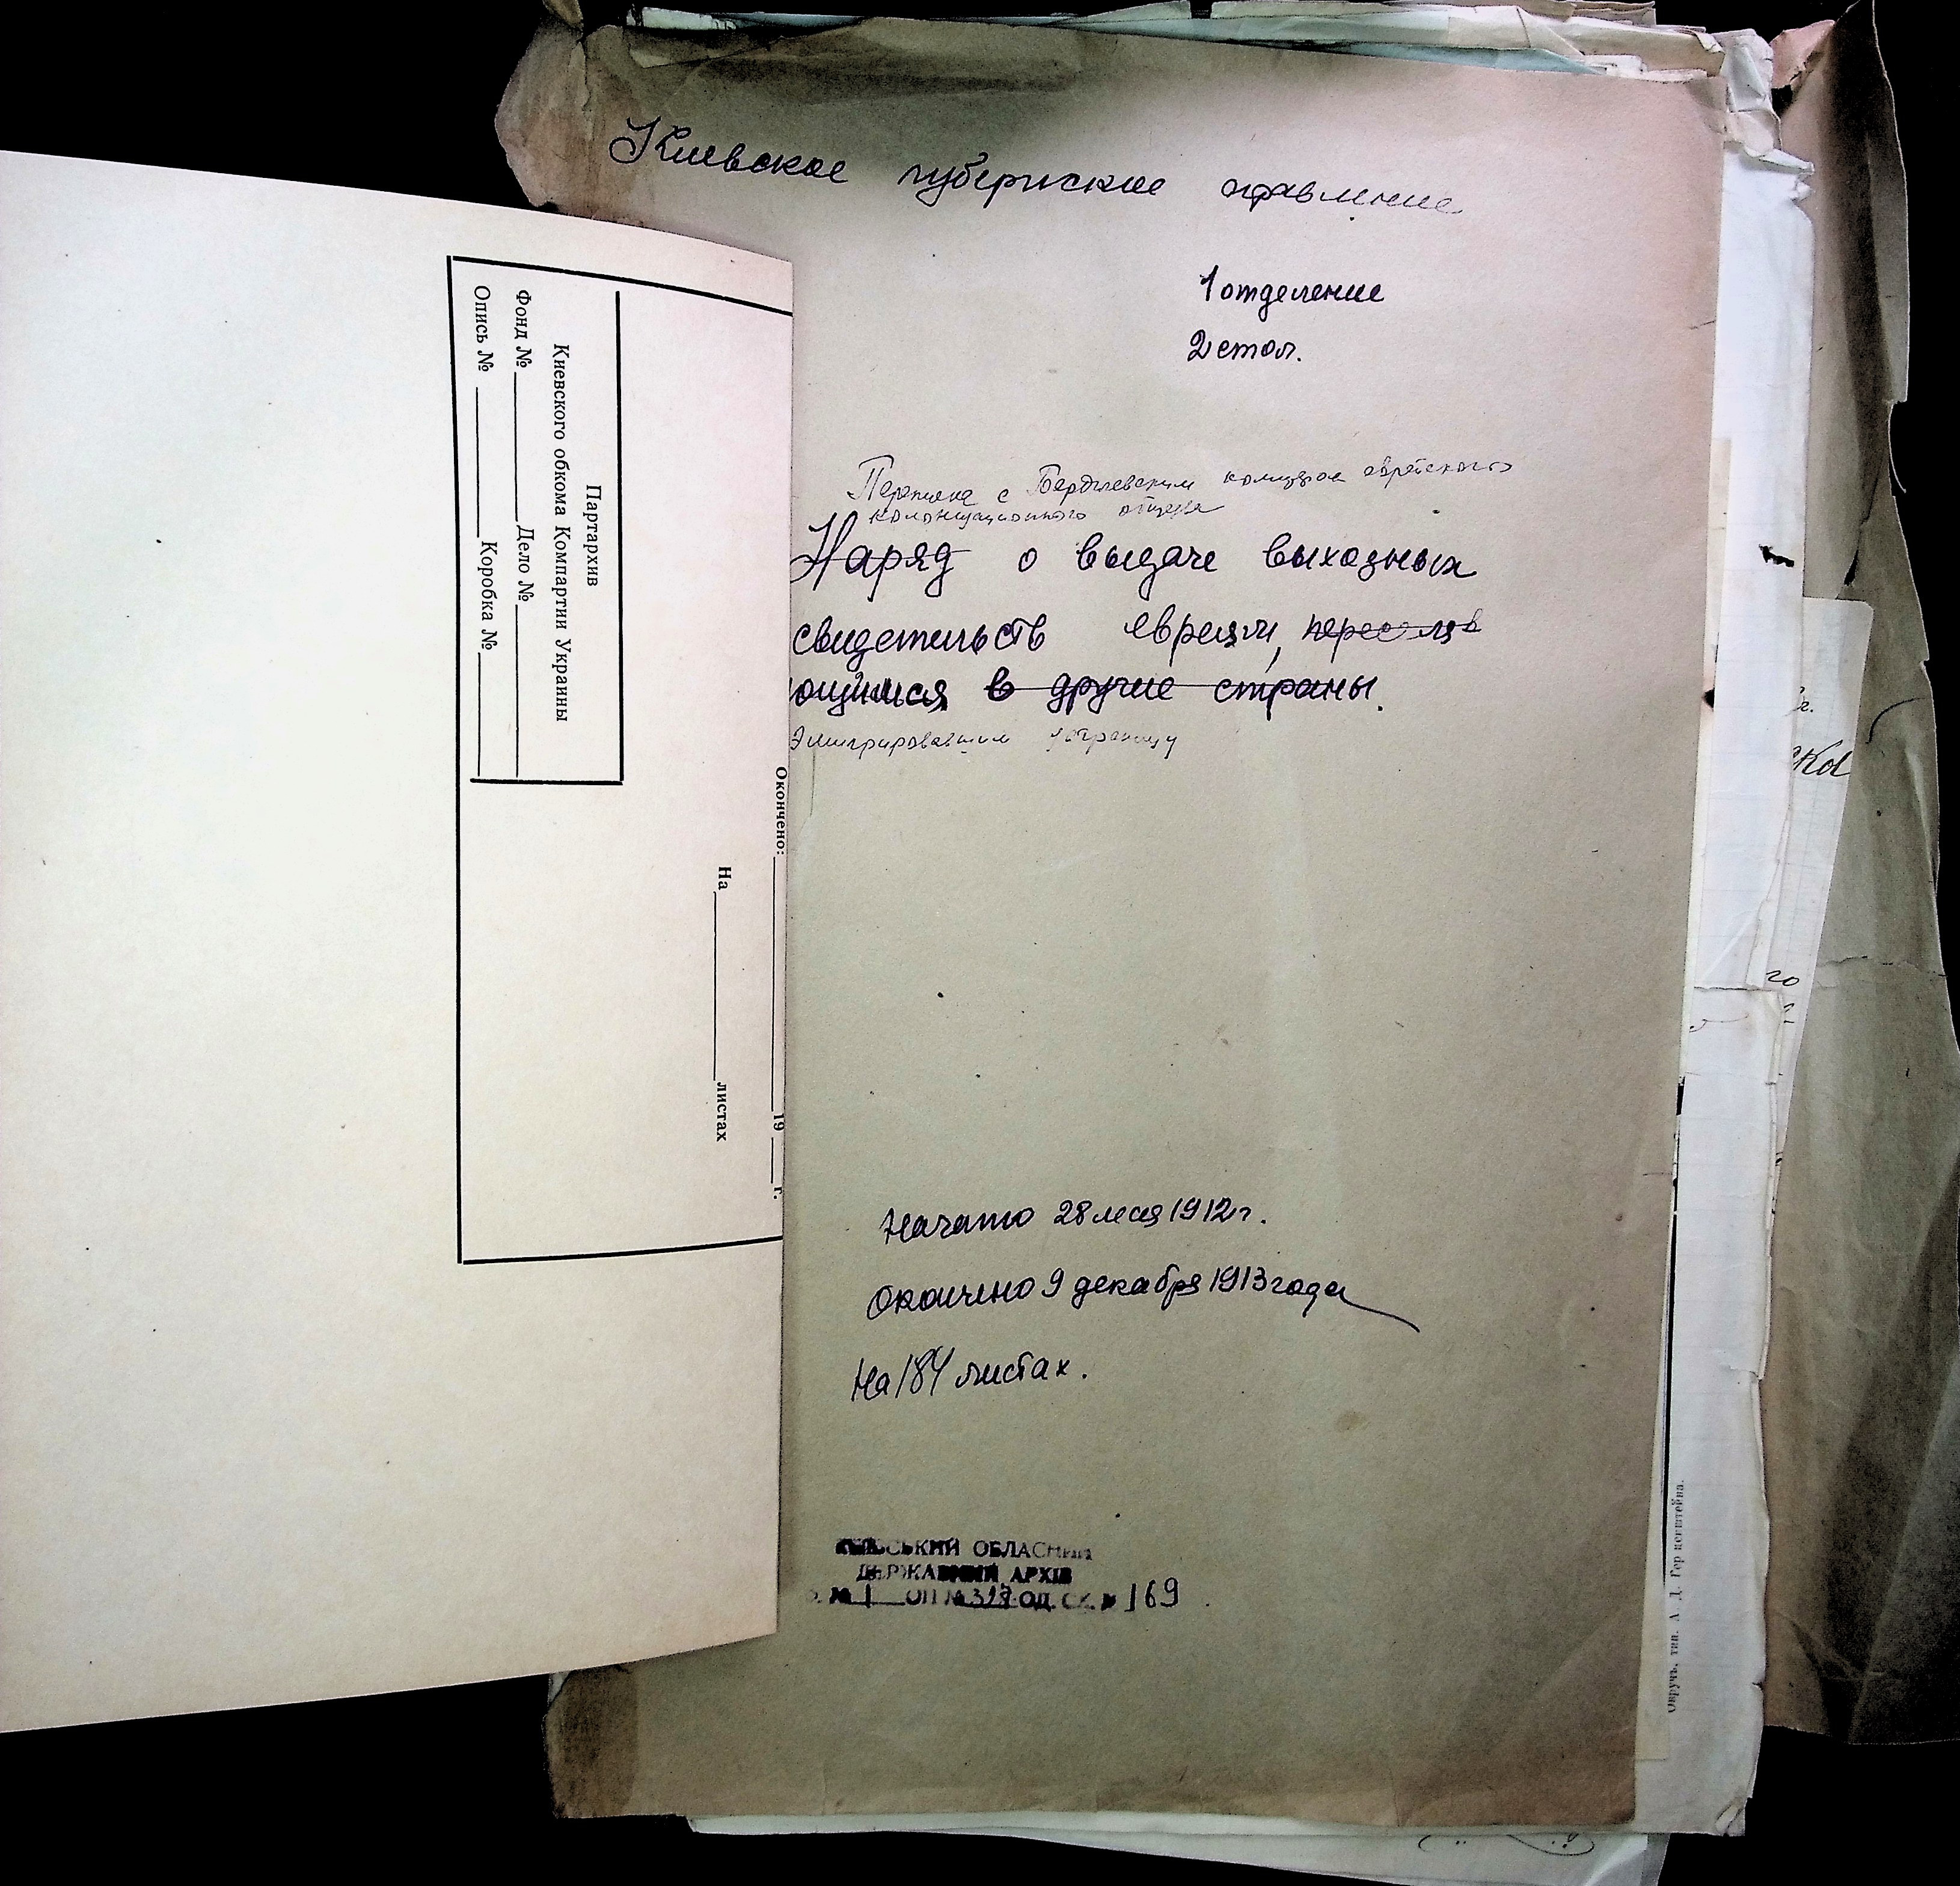 Киевское губернское правление
1 отделение
2 стол.
Переписка с Бердичевским комитетом еврейского
колонизационного общества
Наряд о выдаче выходных
свидетельств евреям, переселя
ющимся в другие страны.
Эмигрировавшим заграницу
Начато 28 мая 1912 г.
Окончено 9 декабря 1913 года
На 184 листах.
ОБЛАСНИЙ
ДЕРЖАВНИЙ АРХІВ
№ 1 ОП № 317 ОД. СХ. № 169
Партархив
Киевского обкома Компартии Украины
Фонд № Дело №
Опись № Коробка №
Окончено: 19 г.
На листах
Овручъ, тип. А. Д.
го